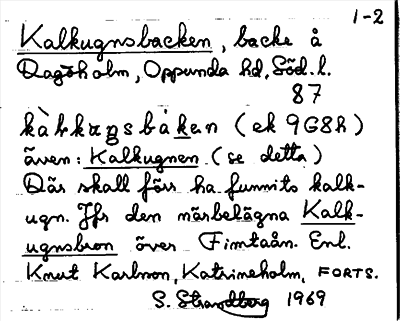 1-2
Kalkugnsbacken, backe å
Dagöholm, Oppunda hd, Söd. l.
87
även: Kalkugnen (se detta)
Där skall förr ha funnits kalk-
ugn. Jfr den närbelägna Kalk-
ugnsbron över Fimtaån. Enl.
Knut Karlsson, Katrineholm, FORTS.
S. Strandberg 1969